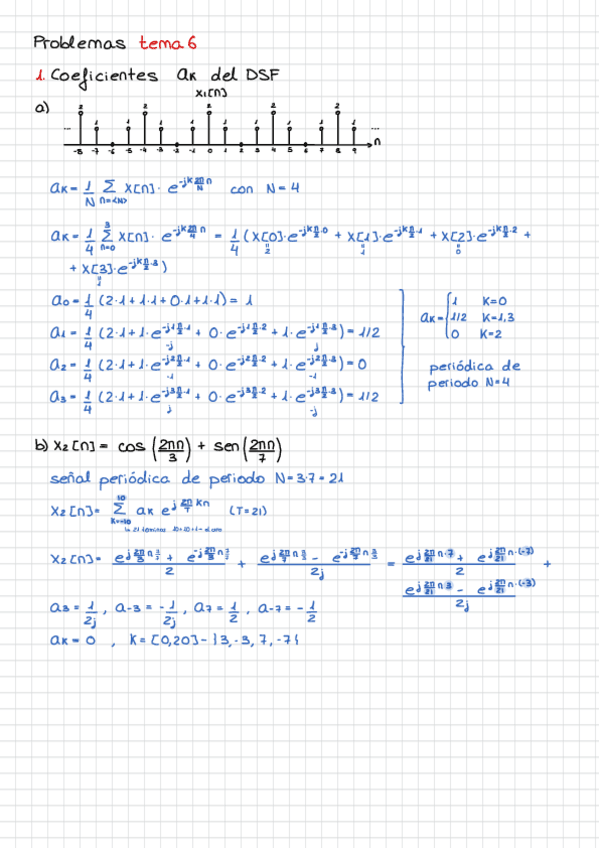 Problemas tema 6
1. Coeficientes ak del DSF
x₁[n]
a)
2 1 1 2 1 1 2 1 1 2 1 1 2 1
... ... n
-8 -7 -5 -4 -3 -1 0 1 3 4 5 7 8 9
ak = 1/N Σ n=<N> x[n] · e^(-jk 2π/N n) con N = 4
ak = 1/4 Σ n=0 3 x[n] · e^(-jk 2π/4 n) = 1/4 (x[0]·e^(-jk π/2 ·0) + x[1]·e^(-jk π/2 ·1) + x[2]·e^(-jk π/2 ·2) +
"2 "1 "0
+ x[3]·e^(-jk π/2 ·3))
"1
a0 = 1/4 (2·1 + 1·1 + 0·1 + 1·1) = 1
a1 = 1/4 (2·1 + 1·e^(-j1 π/2 ·1) + 0·e^(-j1 π/2 ·2) + 1·e^(-j1 π/2 ·3)) = 1/2
-j j
a2 = 1/4 (2·1 + 1·e^(-j2 π/2 ·1) + 0·e^(-j2 π/2 ·2) + 1·e^(-j2 π/2 ·3)) = 0
-1 -1
a3 = 1/4 (2·1 + 1·e^(-j3 π/2 ·1) + 0·e^(-j3 π/2 ·2) + 1·e^(-j3 π/2 ·3)) = 1/2
j -j
ak = { 1 k=0
1/2 k=1,3
0 k=2
periódica de
periodo N=4
b) x₂[n] = cos (2πn/3) + sen (2πn/7)
señal periódica de periodo N=3·7=21
x₂[n] = Σ k=-10 10 ak e^(j 2π/T kn) (T=21)
x₂[n] = (e^(j 2π/3 n 7/7) + e^(-j 2π/3 n 7/7))/2 + (e^(j 2π/7 n 3/3) - e^(-j 2π/7 n 3/3))/2j = (e^(j 2π/21 n·7) + e^(j 2π/21 n·(-7)))/2 +
(e^(j 2π/21 n·3) - e^(j 2π/21 n·(-3)))/2j
a3 = 1/2j , a-3 = -1/2j , a7 = 1/2 , a-7 = -1/2
ak = 0 , k = [0,20] - {3,-3, 7, -7}